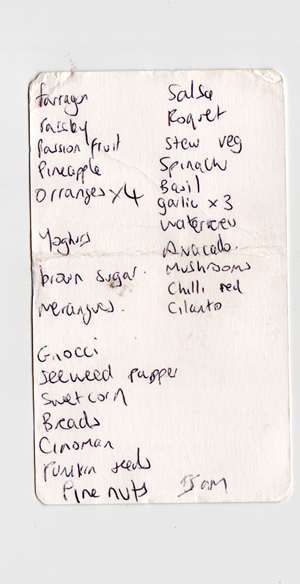 Tarragon
Parsley
Passion fruit
Pineapple
Orranges x4
Yoghurs
brown sugar.
Merangues.
Gnocci
Seeweed papper
Swetcorn
Breads
Cinoman
Pumkin seeds
Pine nuts
Salsa
Roquet
Stew veg
Spinach
Basil
garlic x 3
Watercres
Avacado.
Mushrooms
Chilli red
Cilanto